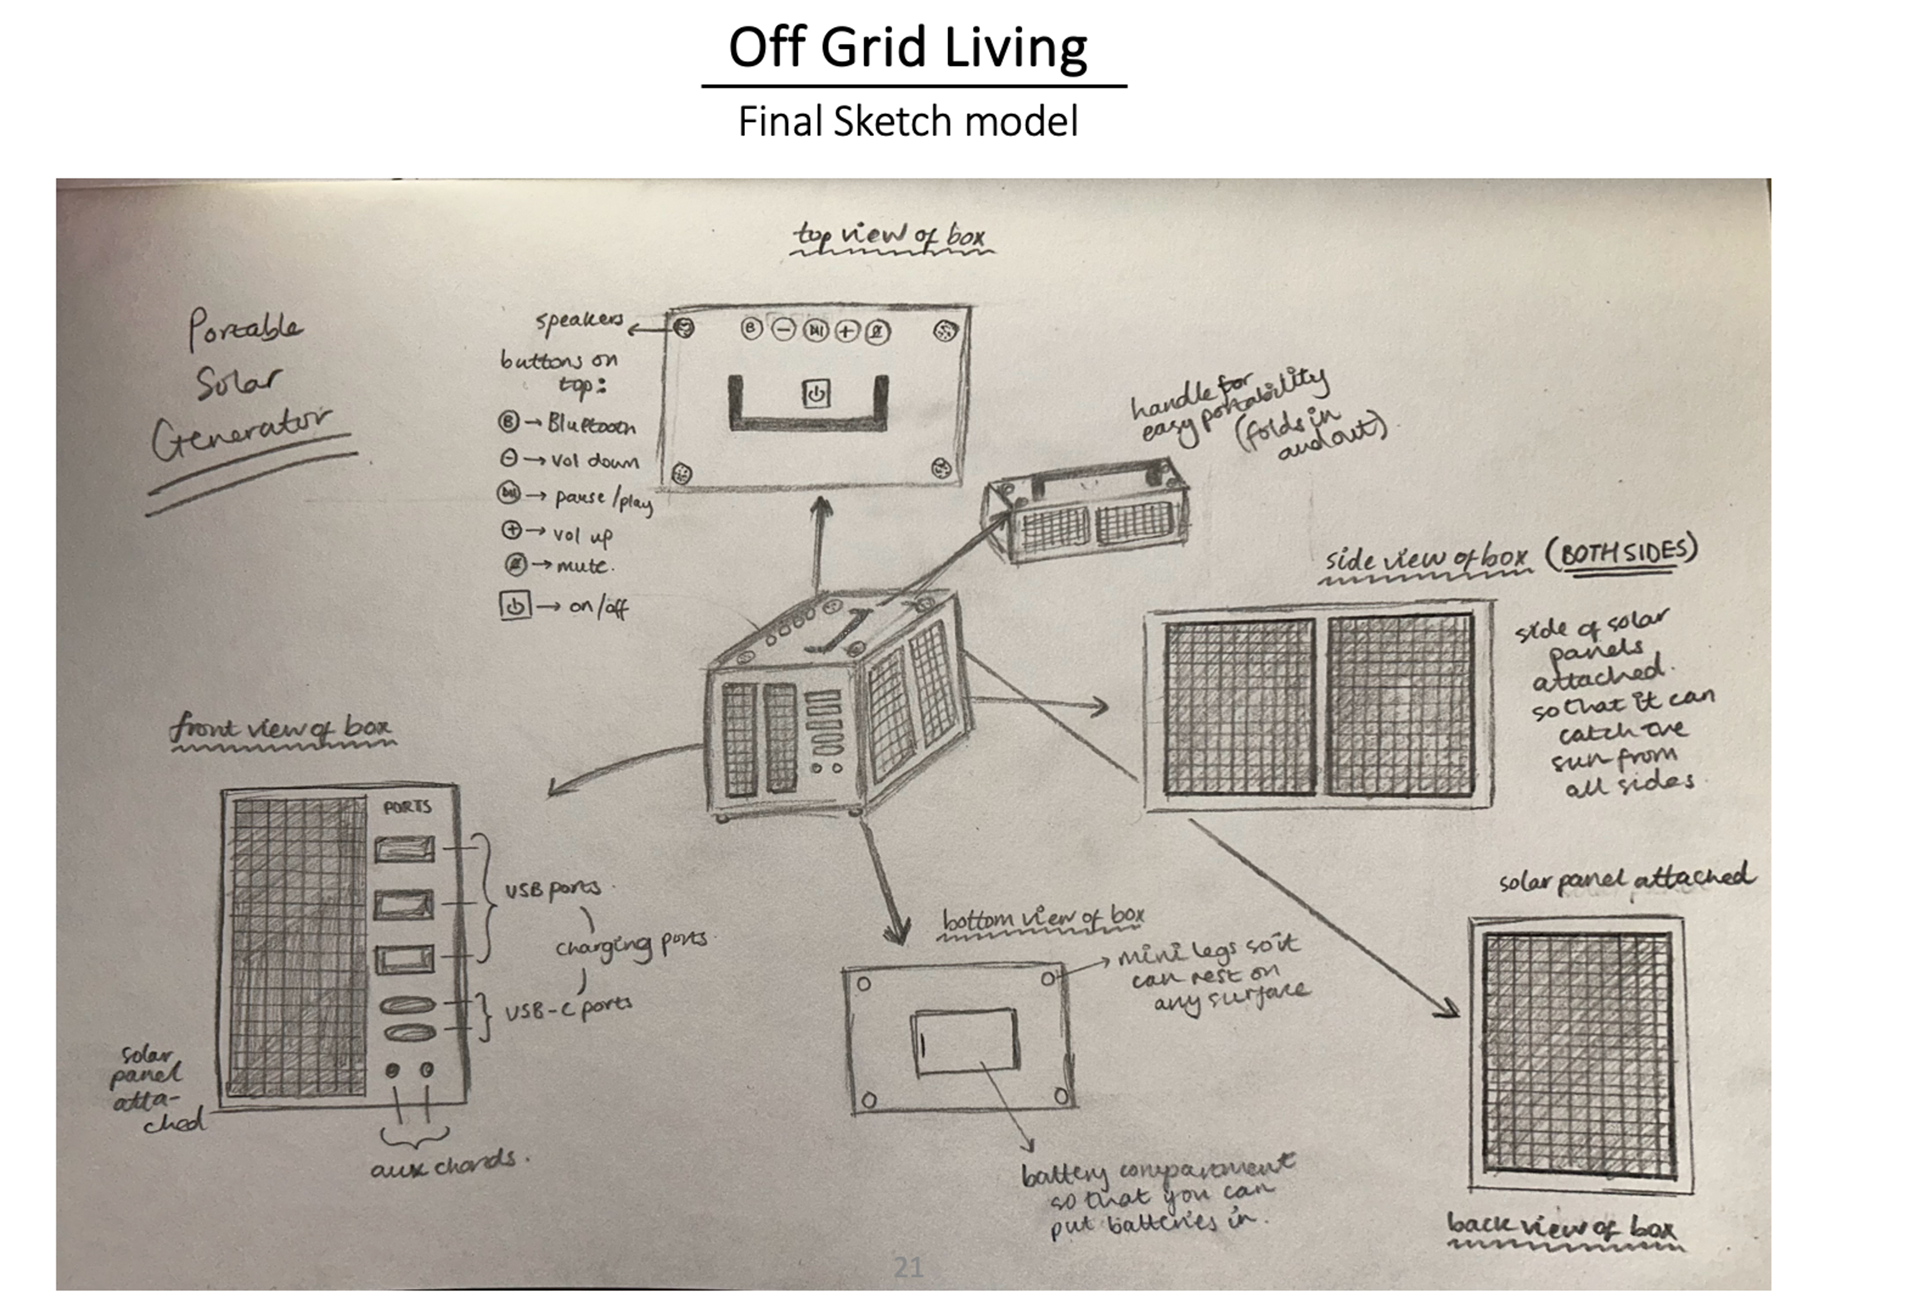 Off Grid Living
Final Sketch model
Portable
Solar
Generator
top view of box
speakers
buttons on
top:
B → Bluetooth
- → vol down
→ pause/play
+ → vol up
→ mute.
→ on/off
B - +
handle for
easy portability
(folds in
and out)
side view of box (BOTH SIDES)
side of solar
panels
attached.
so that it can
catch the
sun from
all sides
front view of box
PORTS
USB ports
charging ports
USB-C ports
aux chords.
solar
panel
atta-
ched
bottom view of box
mini legs so it
can rest on
any surface
battery compartment
so that you can
put batteries in.
solar panel attached
back view of box
21